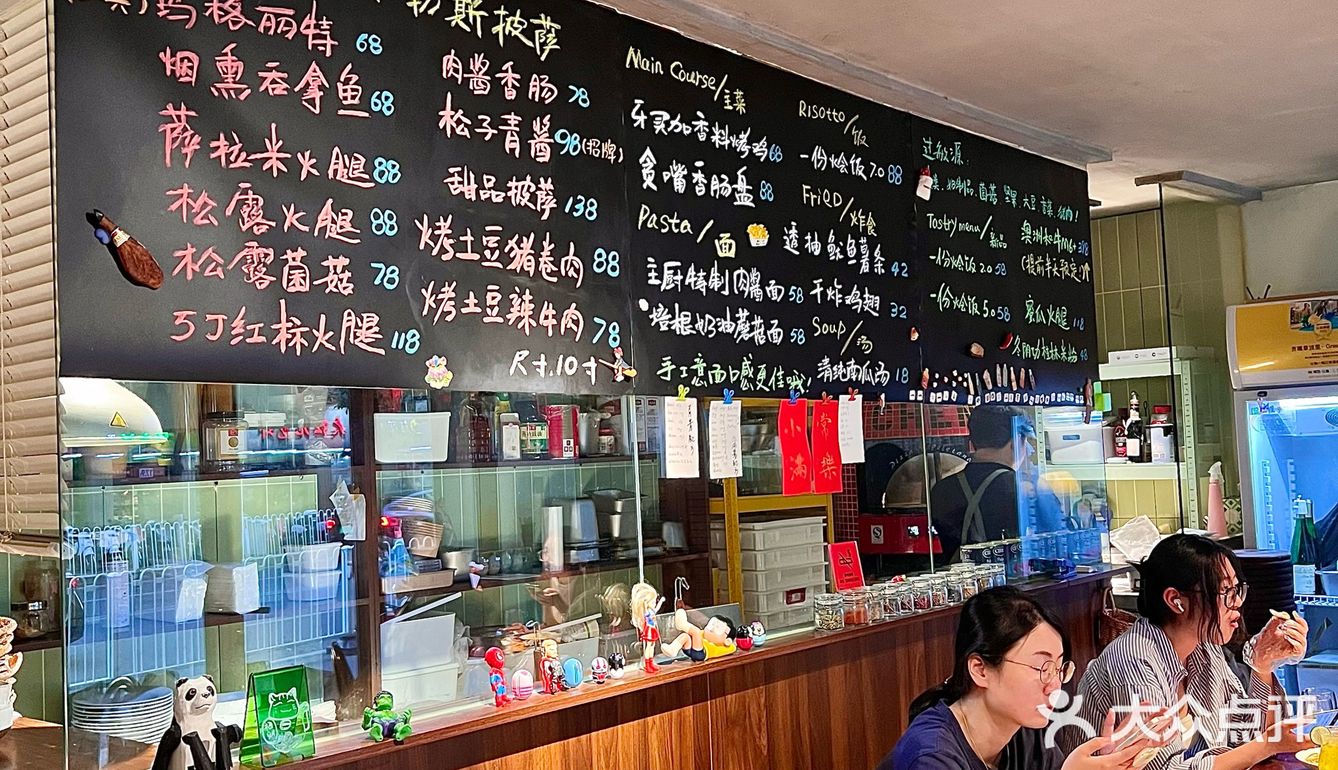 玛格丽特 68
烟熏吞拿鱼 68
萨拉米火腿 88
松露火腿 88
松露菌菇 78
5J红标火腿 118
斯披萨
肉酱香肠 78
松子青酱 98(招牌)
甜品披萨 138
烤土豆猪卷肉 88
烤土豆辣牛肉 78
尺寸.10寸
Main Course/主菜
牙买加香料烤鸡 68
贪嘴香肠盘 88
Pasta/面
主厨特制肉酱面 58
培根奶油蘑菇面 58
手工意面口感更佳哦!
Risotto/饭
一份烩饭 7.0 88
FriQD/炸食
透抽鱿鱼薯条 42
干炸鸡翅 32
Soup/汤
清炖南瓜汤 18
过敏源:
奶制品、菌菇 坚果、大豆
Tastymenu/新品
一份烩饭 2.0 58
一份烩饭 5.0 58
澳洲和牛M6+ 318
蜜瓜火腿 118
48
小满
常樂
大众点评